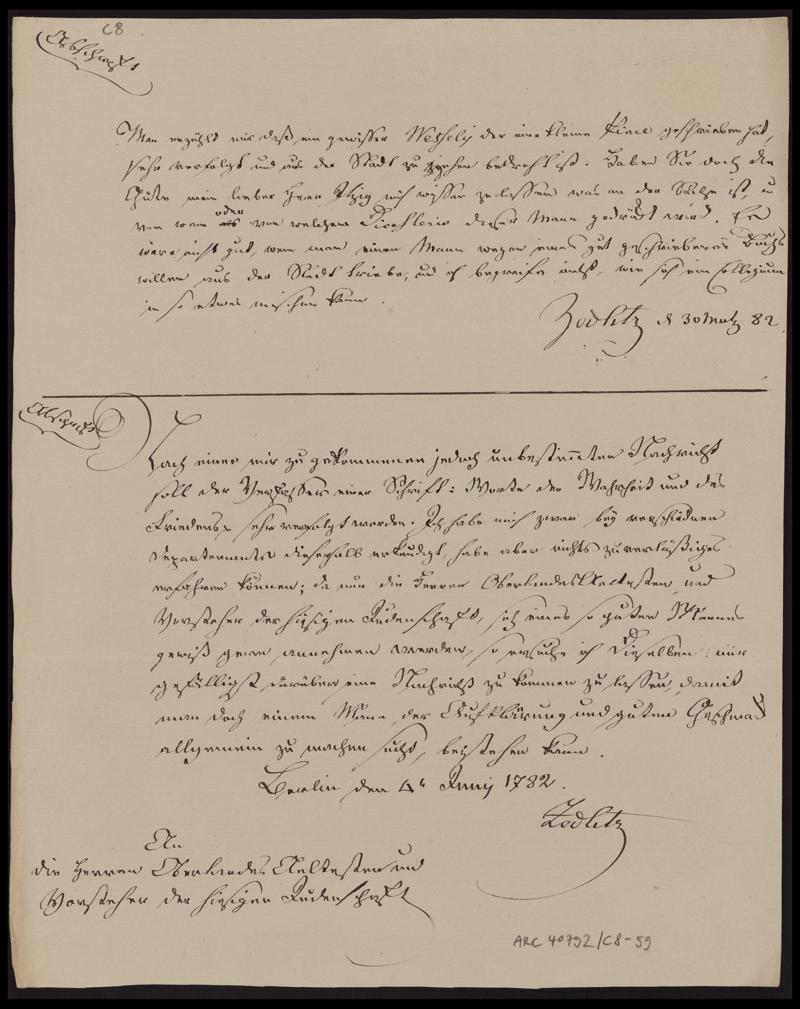 C8
Abschrift
Man erzählt mir daß ein gewisser Wessely der eine kleine Piece geschrieben hat,
sehr verfolgt und aus der Stadt zu ziehen bedroht ist. Haben Sie doch die
Güte mein lieber Herr Itzig mich wissen zu lassen was an der Sache ist, u
von wem oder von welchem Directorio dieser Mann gedrückt wird. Es
wäre nicht gut, wenn man einen Mann wegen eines gut geschriebenen Buchs
willen aus der Stadt triebe, und ich begreife nicht, wie sich ein Collegium
in so etwas mischen kann.
Zedlitz d 30 82
Abschrift
Nach einer mir zugekommenen jedoch unbestimmten Nachricht
soll der Verfasser einer Schrift: Worte der Wahrheit und des
Friedens sehr verfolgt werden. Ich habe mich zwar bey verschiednen
Departements dieserhalb erkundigt, habe aber nichts zuverläßiges
erfahren können; da nun die Herren Oberlandes Aeltesten und
Vorsteher der hiesigen Judenschaft, sich eines so guten Mannes
gewiß gern annehmen werden, so ersuche ich Dieselben: mir
gefälligst darüber eine Nachricht zu kommen zu lassen, damit
man doch einem Mann der Aufklärung und guten Geschmack
allgemein zu machen sucht, beystehen kann.
Berlin den 4t Juny 1782.
Zedlitz
An
die Herren Oberlandes Aeltesten und
Vorsteher der hiesigen Judenschaft
ARC 40792/C8-59